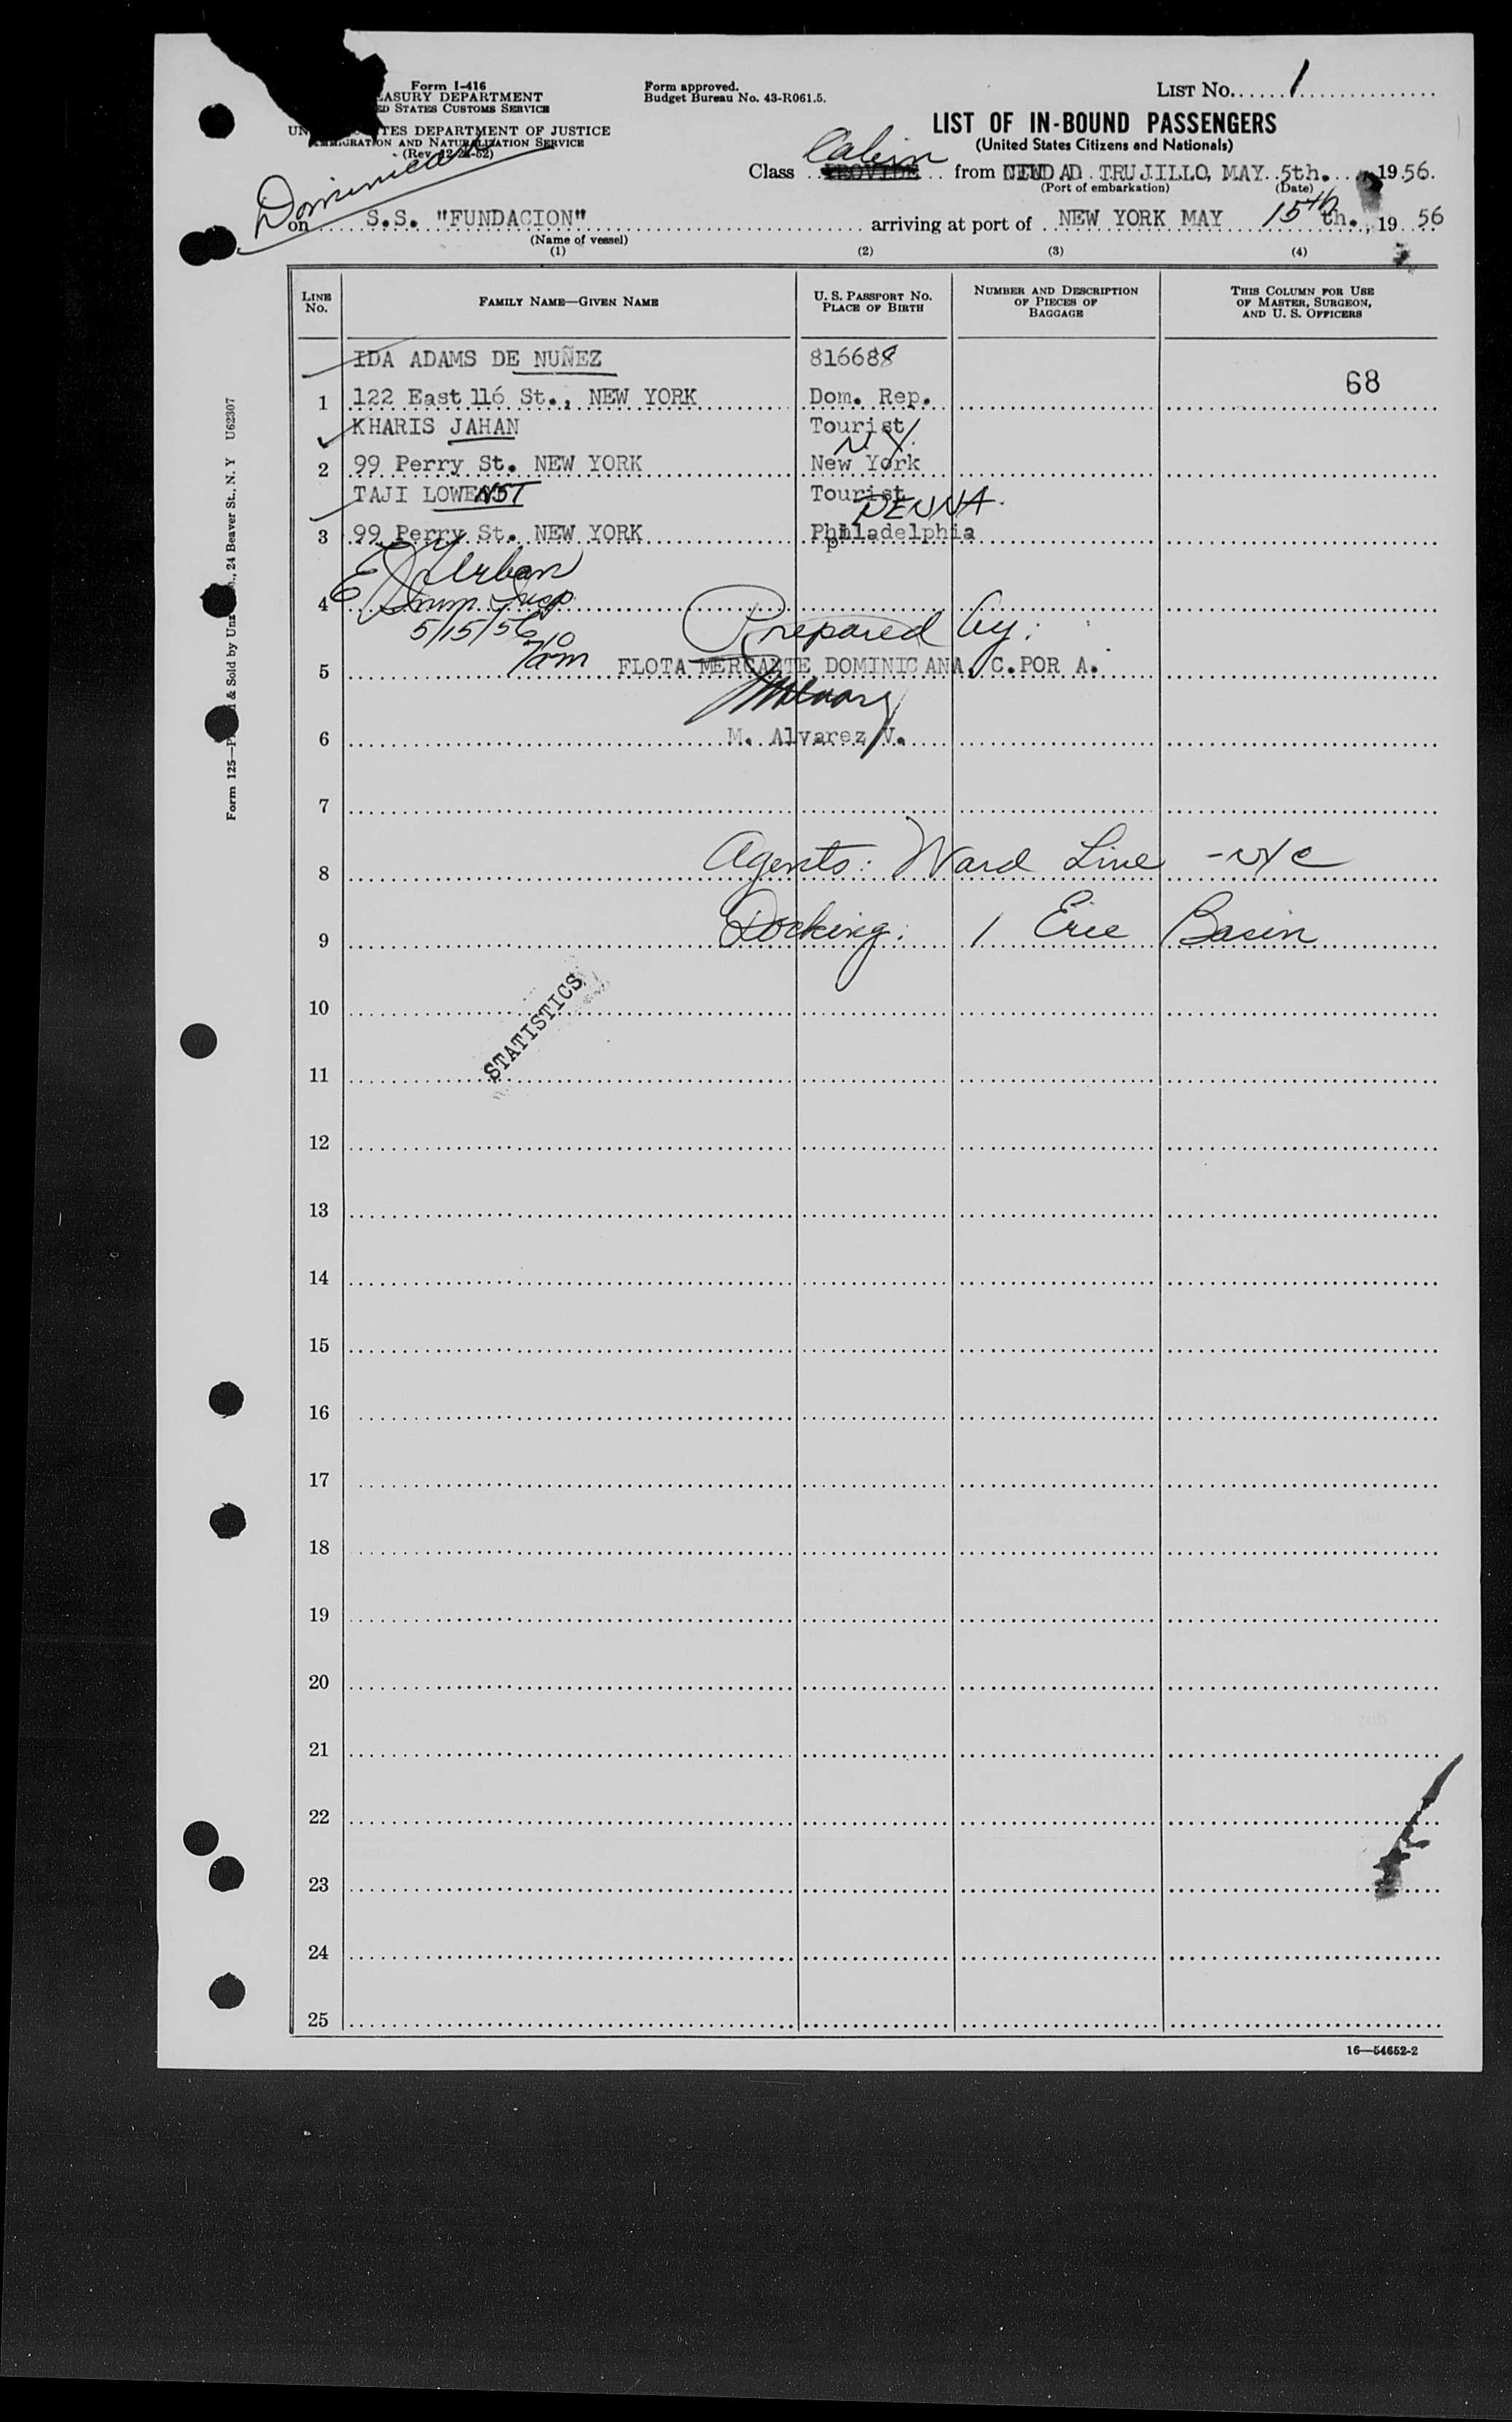 Form I-416
EASURY DEPARTMENT
ED STATES CUSTOMS SERVICE
TES DEPARTMENT OF JUSTICE
IMMIGRATION AND NATURALIZATION SERVICE
(Rev. 12-24-52)
Form approved.
Budget Bureau No. 43-R061.5.
LIST No. 1
LIST OF IN-BOUND PASSENGERS
(United States Citizens and Nationals)
Cabin
Class from CIUDAD TRUJILLO, MAY 5th. 1956.
(Port of embarkation) (Date)
Dominican
on S.S. "FUNDACION" arriving at port of NEW YORK MAY 15th th., 19 56
(Name of vessel)
(1) (2) (3) (4)
LINE No. FAMILY NAME—GIVEN NAME U. S. PASSPORT No. PLACE OF BIRTH NUMBER AND DESCRIPTION OF PIECES OF BAGGAGE THIS COLUMN FOR USE OF MASTER, SURGEON, AND U. S. OFFICERS
IDA ADAMS DE NUÑEZ 816688
68
1 122 East 116 St., NEW YORK Dom. Rep.
KHARIS JAHAN Tourist
N.Y.
2 99 Perry St. NEW YORK New York
TAJI LOWENST Tourist
PENNA.
3 99 Perry St. NEW YORK Philadelphia
E Urban
4 Imm. Insp.
5/15/56
Prepared by:
710 am
5 FLOTA MERCANTE DOMINICANA, C.POR A.
6 M. Alvarez V.
7
8 Agents: Ward Line - NYC
9 Docking: 1 Erie Basin
STATISTICS
10
11
12
13
14
15
16
17
18
19
20
21
22
23
24
25
16—54652-2
Form 125—P & Sold by Unz , 24 Beaver St., N. Y U62307